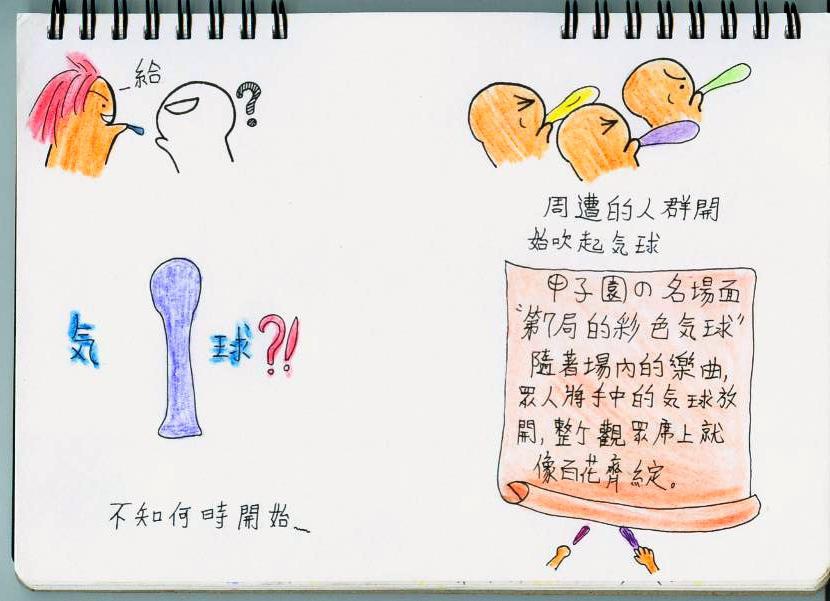 給
?
気 球?!
不知何時開始~
周遭的人群開
始吹起気球
甲子園の名場面
"第7局的彩色気球"
隨著場內的樂曲,
眾人將手中的気球放
開,整个觀眾席上就
像百花齊綻。